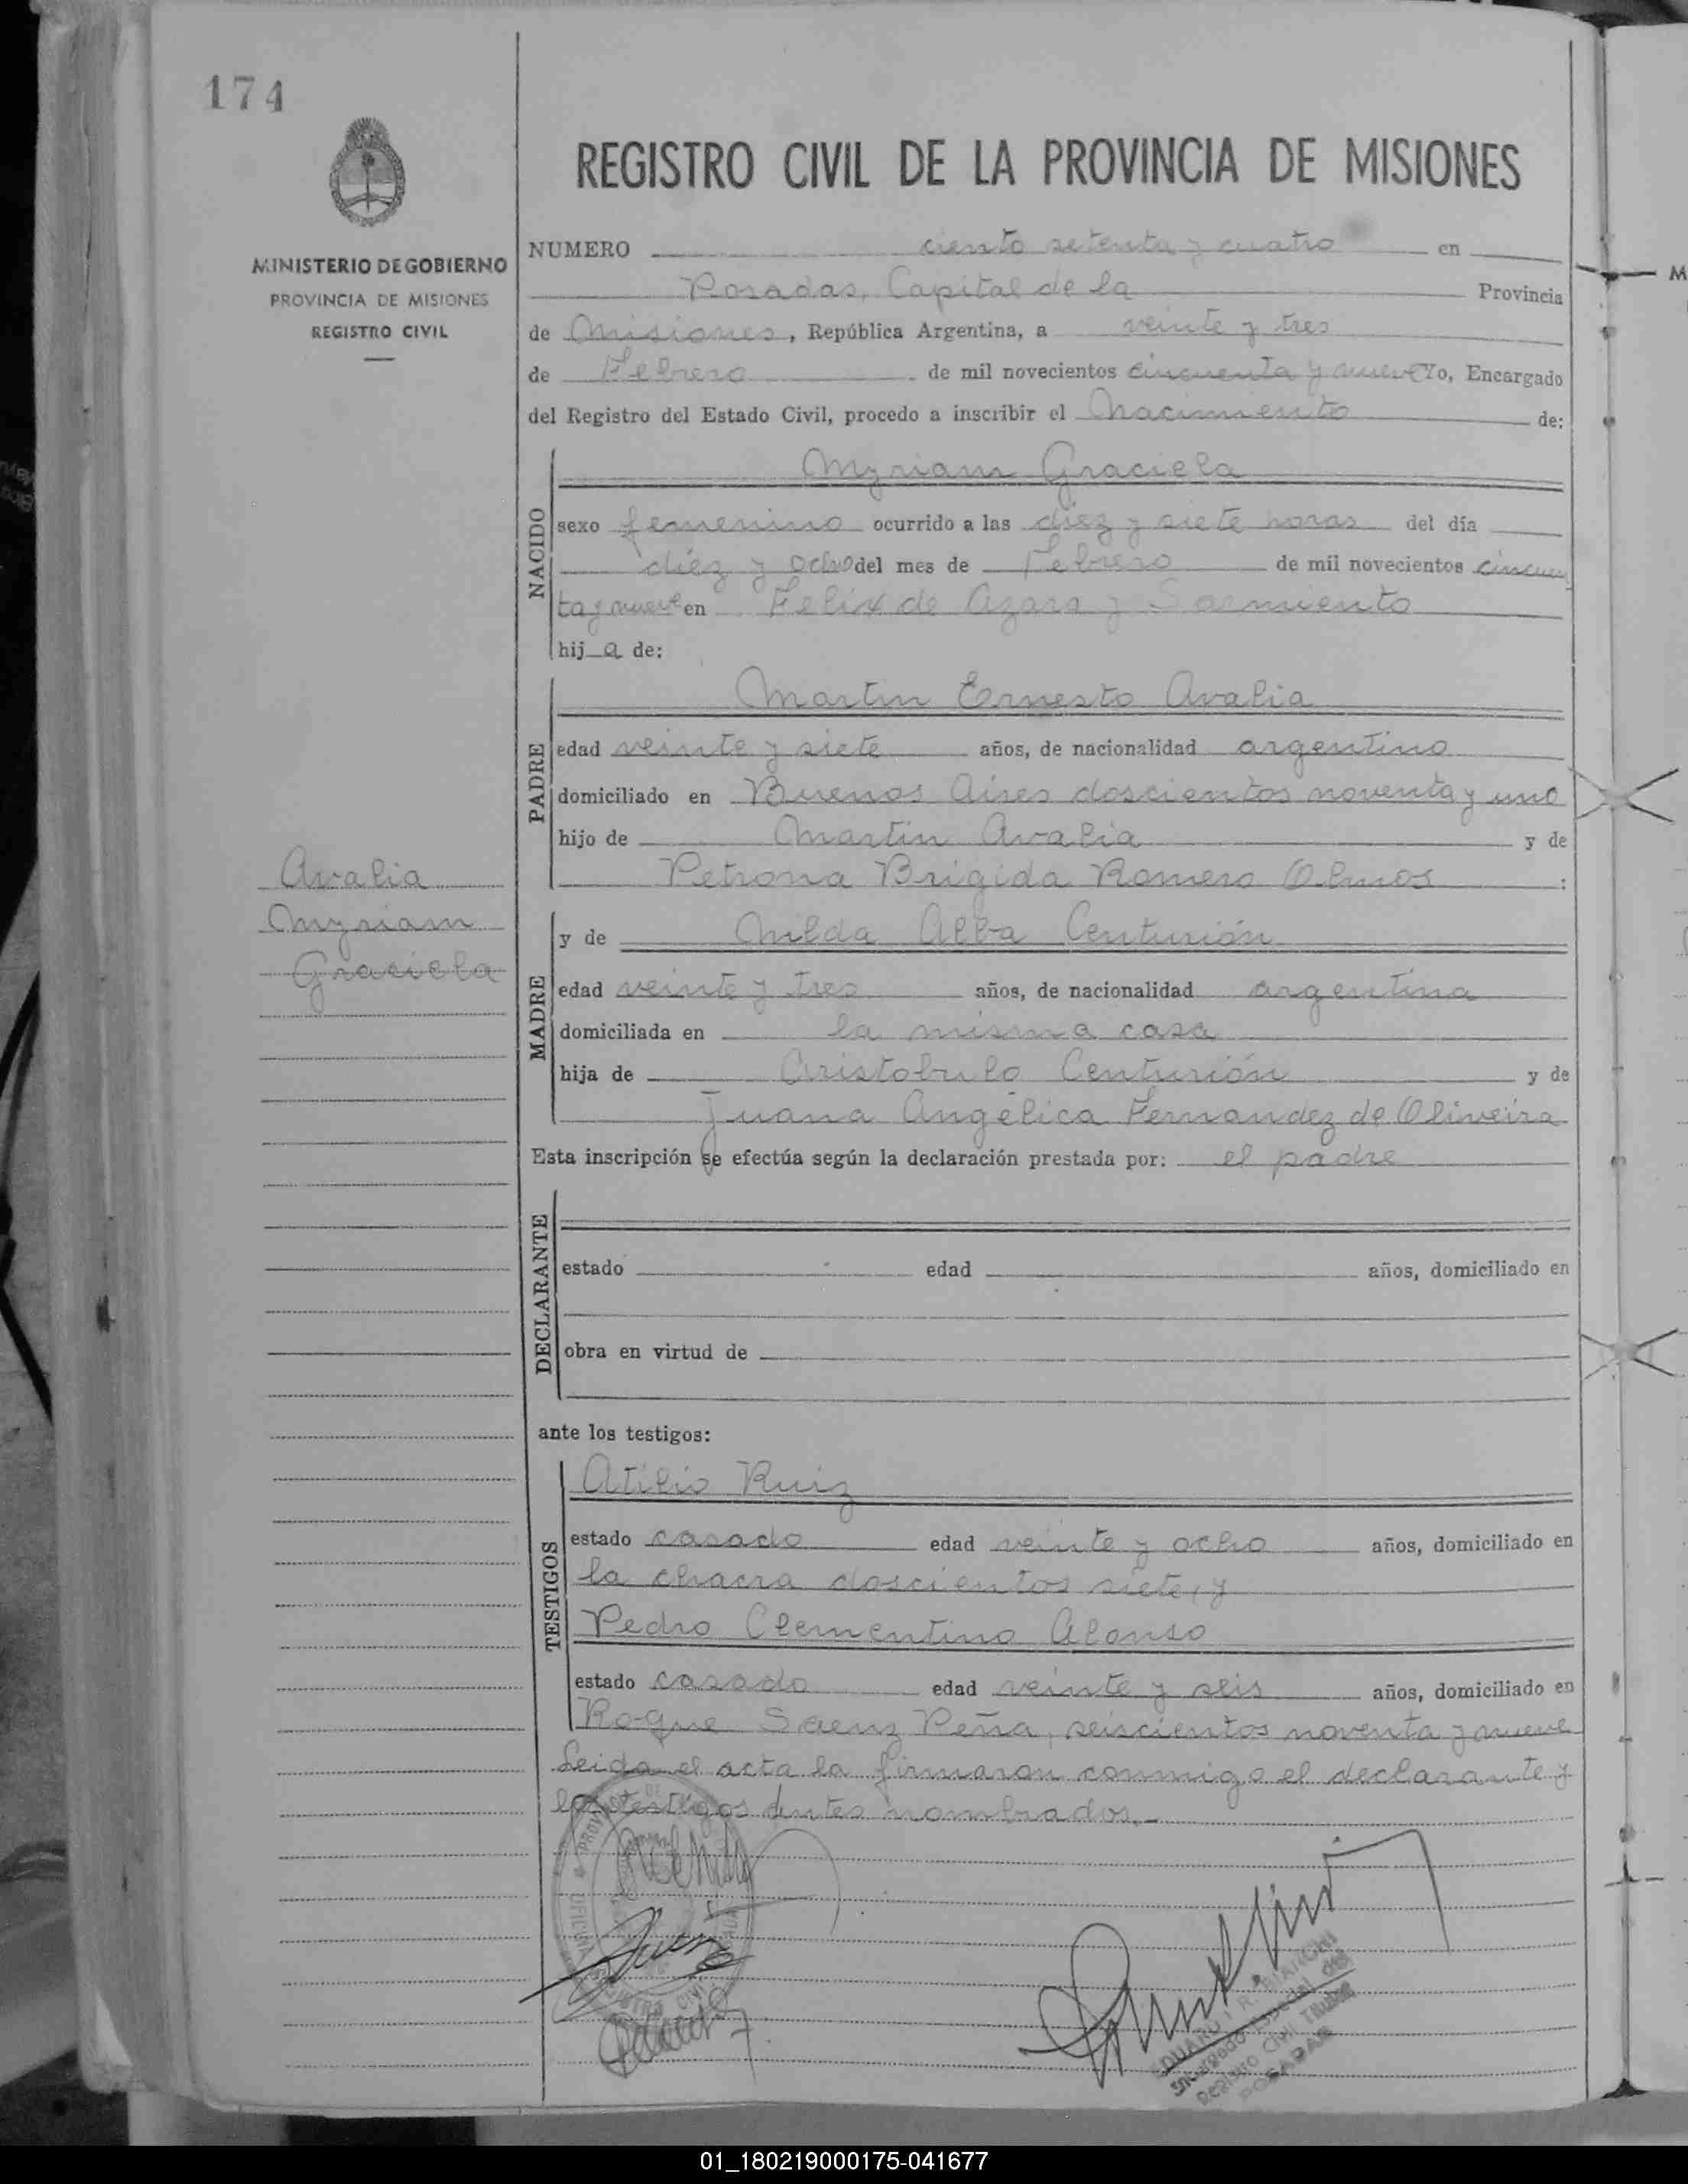 174
REGISTRO CIVIL DE LA PROVINCIA DE MISIONES
MINISTERIO DE GOBIERNO
PROVINCIA DE MISIONES
REGISTRO CIVIL
NUMERO ciento setenta y cuatro en
Posadas, Capital de la Provincia
de Misiones, República Argentina, a veinte y tres
de Febrero de mil novecientos cincuenta y nueve Yo, Encargado
del Registro del Estado Civil, procedo a inscribir el Nacimiento de:
NACIDO
Myriam Graciela
sexo femenino ocurrido a las diez y siete horas del día
diéz y ocho del mes de Febrero de mil novecientos cincuen
ta y nueve en Felix de Azara y Sarmiento
hij a de:
PADRE
Martin Ernesto Avalia
edad veinte y siete años, de nacionalidad argentino
domiciliado en Buenos Aires doscientos noventa y uno
hijo de Martin Avalia y de
Petrona Brigida Romero Olmos :
Avalia
Myriam
Graciela
MADRE
y de Nilda Alba Centurión
edad veinte y tres años, de nacionalidad argentina
domiciliada en la misma casa
hija de Aristobulo Centurión y de
Juana Angélica Fernandez de Oliveira
Esta inscripción se efectúa según la declaración prestada por: el padre
DECLARANTE
estado edad años, domiciliado en
obra en virtud de
ante los testigos:
TESTIGOS
Atilio Ruiz
estado casado edad veinte y ocho años, domiciliado en
la chacra doscientos siete, y
Pedro Clementino Alonso
estado casado edad veinte y seis años, domiciliado en
Roque Saenz Peña, seiscientos noventa y nueve
Leida el acta la firmaron conmigo el declarante y
los testigos antes nombrados.-
Encargado Especial del
Registro Civil Titular
POSADAS
01_180219000175-041677